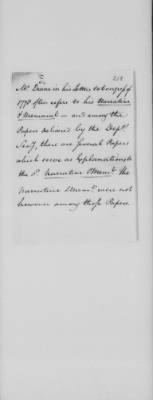 218
Mr Evans in his Letter to Congress of
1778 often refers to his Narrative
& Memorial — and among the
Papers delivered by the Depy.
Secy, there are several Papers
which serve as Explanations to
the sd. Narrative & Meml. the
Narrative & Meml. were not
however among those Papers.